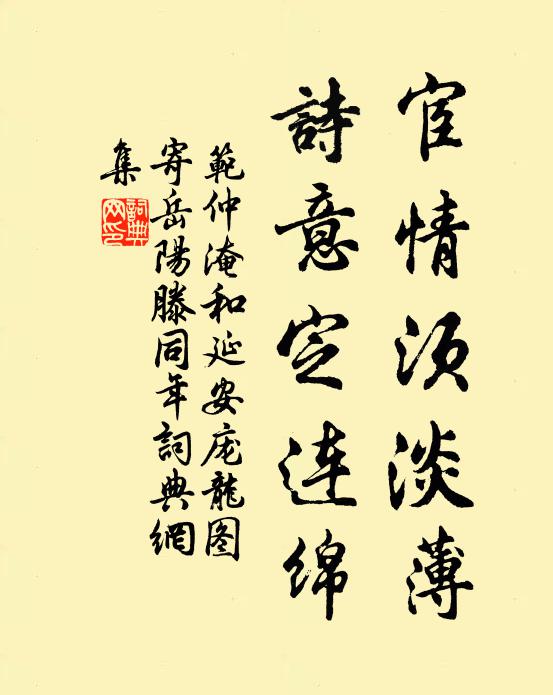 宦情须淡薄
詩意定连绵
範仲淹和延安庞龍图
寄岳陽滕同年詞典網
集
詞典网印